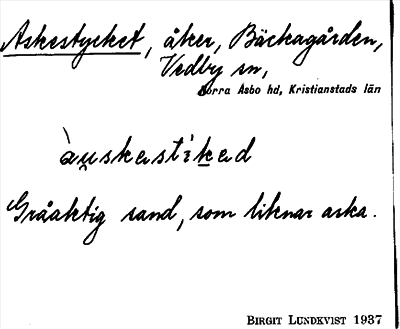 Askestycket, åker, Bäckagården,
Vedby sn,
Norra Åsbo hd, Kristianstads län
àu̯skestìked
Gråaktig sand, som liknar aska.
BIRGIT LUNDKVIST 1937